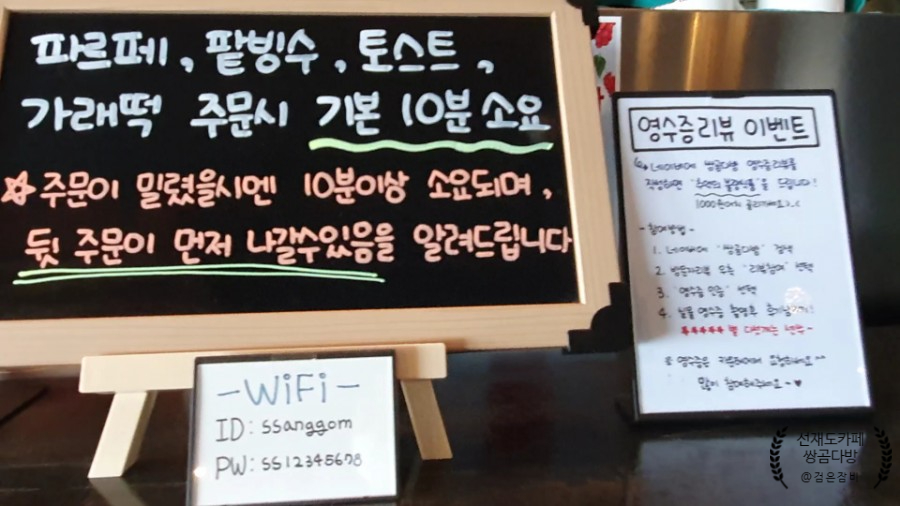 파르페, 팥빙수, 토스트,
가래떡 주문시 기본 10분 소요
☆주문이 밀렸을시엔 10분이상 소요되며,
뒷 주문이 먼저 나갈수있음을 알려드립니다
-WiFi-
ID: ssanggom
PW: ss12345678
영수증리뷰 이벤트
네이버에 쌍곰다방 영수증리뷰를
작성하면 "추억의 불량식품"을 드립니다!
1000원어치 골라가세요>.<
-참여방법-
1. 네이버에 "쌍곰다방" 검색
2. 방문자리뷰 오른 "리뷰참여" 선택
3. "영수증 인증" 선택
4. 실물 영수증 촬영후
★★★★★ 별 다섯개는 센스~
※ 영수증은 카운터에서 요청하세요^^
많이 참여해주세요~♥
선재도카페
쌍곰다방
@검은잠비